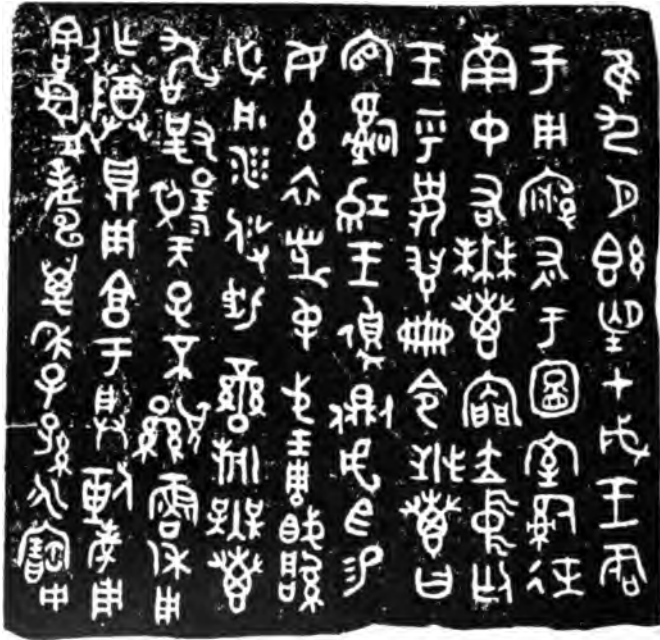 隹九月既望甲戌王各
于周廟于圖室司徒
南中右無叀內門立中廷
王乎史翏冊令無叀曰
官𤔲王側虎臣易
女玄衣黹屯戈琱胾
必彤沙攸勒䜌旂無叀
敢對揚天子不顯魯休用
乍尊鼎用享于朕剌考用
割眉壽萬年子孫永寶用